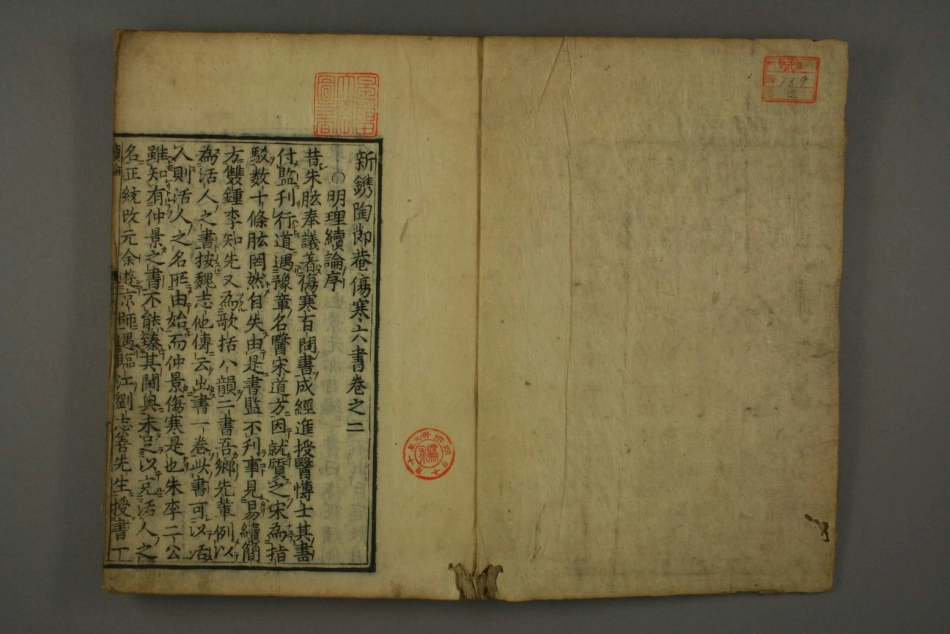 新鐫陶節菴傷寒六書卷之二
○明理續論序
昔朱肱奉議著傷寒百問書成經進授醫博士其書
付監刊行道遇豫章名醫宋道方因就質之宋為指
駁数十條肱罔然自失由是書監不刋事見易續簡
方雙鍾李知先又為歌括八韻二書吾鄉先輩例以
為活人之書按魏志他傳云出書一卷此書可以活
人則活人之名所由始而仲景傷寒是也朱李二公
雖知有仲景之書不能臻其閫奥未足以充活人之
名正統改元余遊京師遇臨江劉志善先生授書一
139
2